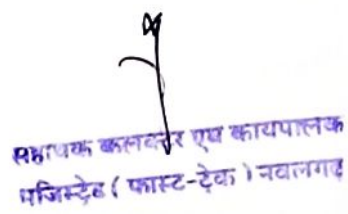 सहायक कलक्टर एवं कार्यपालक
मजिस्ट्रेट ( फास्ट-ट्रेक ) नवलगढ़